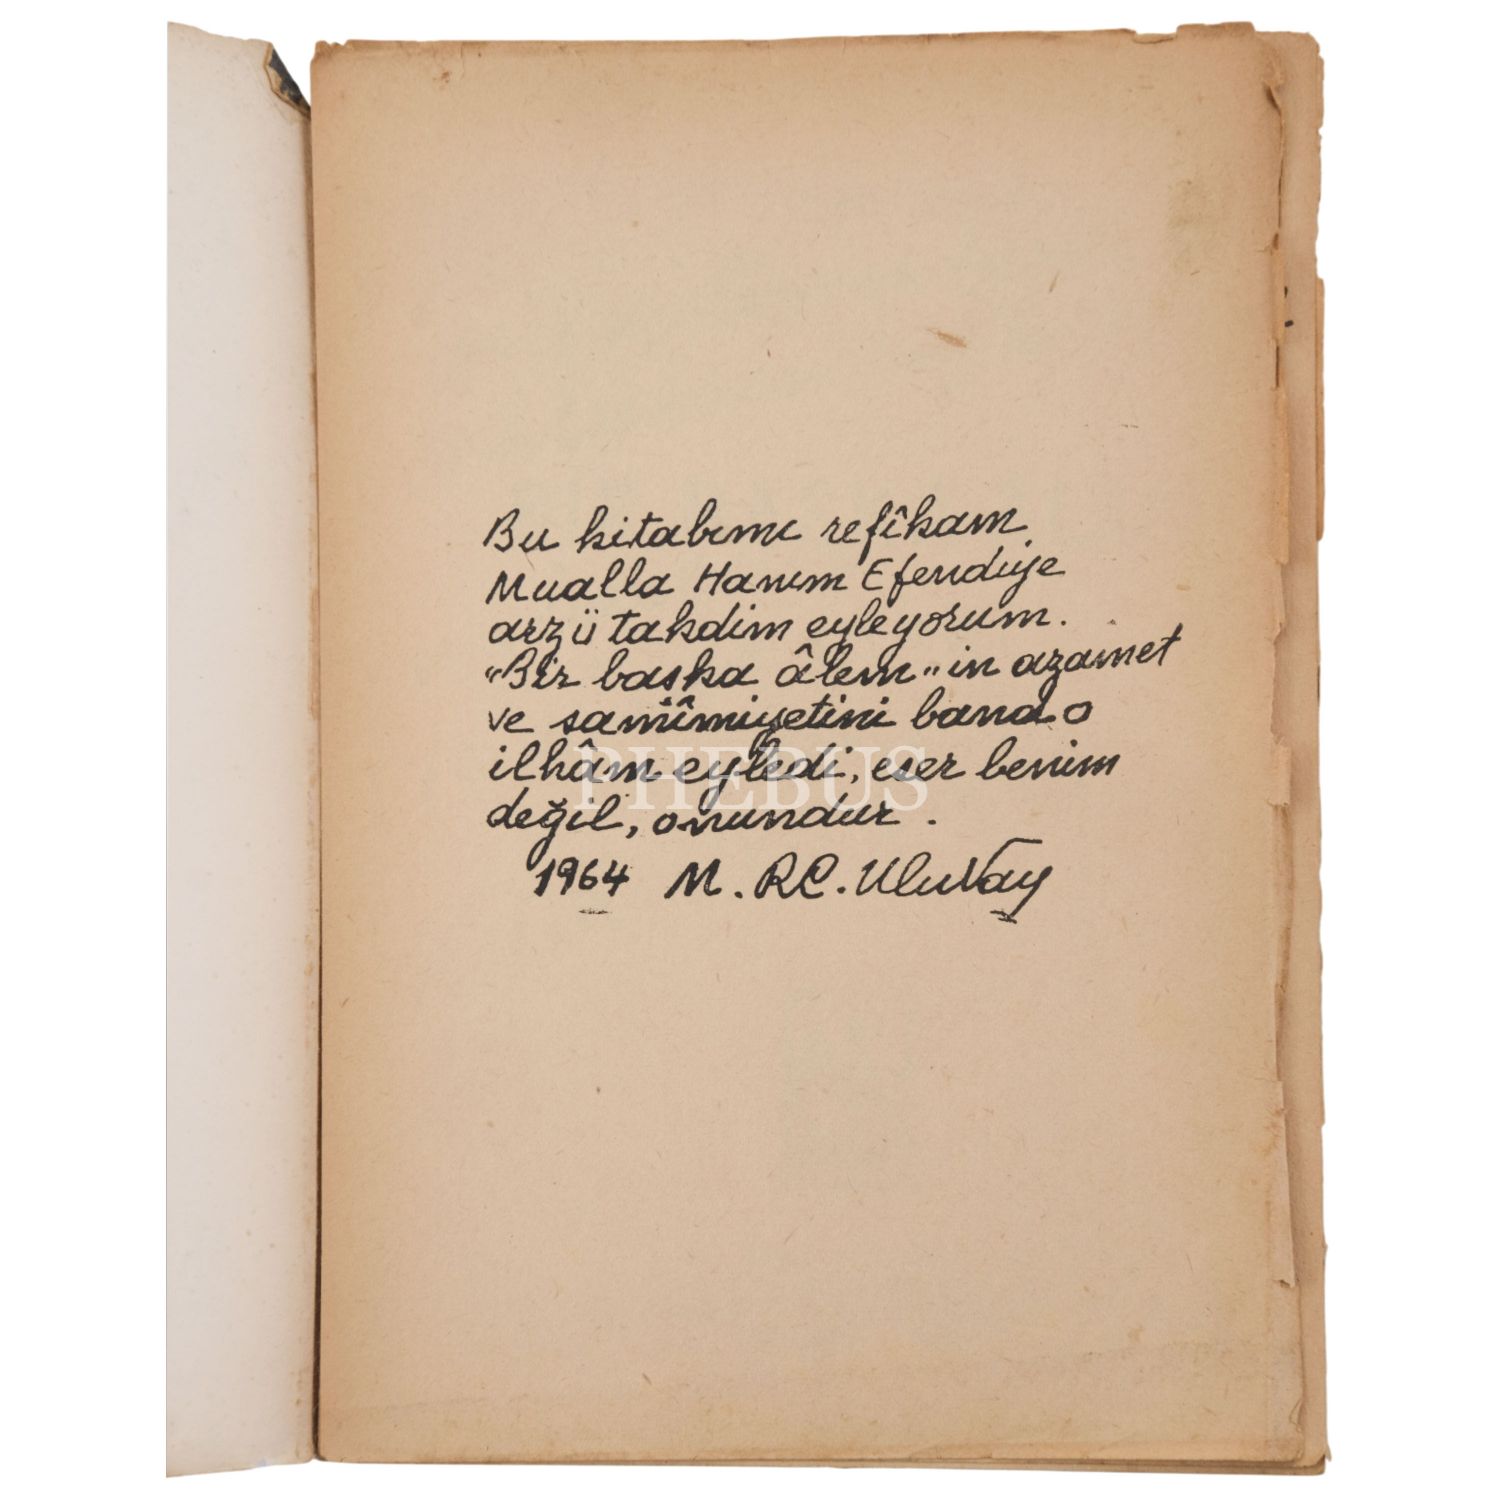 Bu kitabımı refîkam
Mualla Hanım Efendiye
arzü takdim eyleyorum.
"Bir baska âlem" in azamet
ve samîmiyetini bana o
ilhâm eyledi, eser benim
değil, onundur.
1964 M. RC. Uluvay
PHEBUS